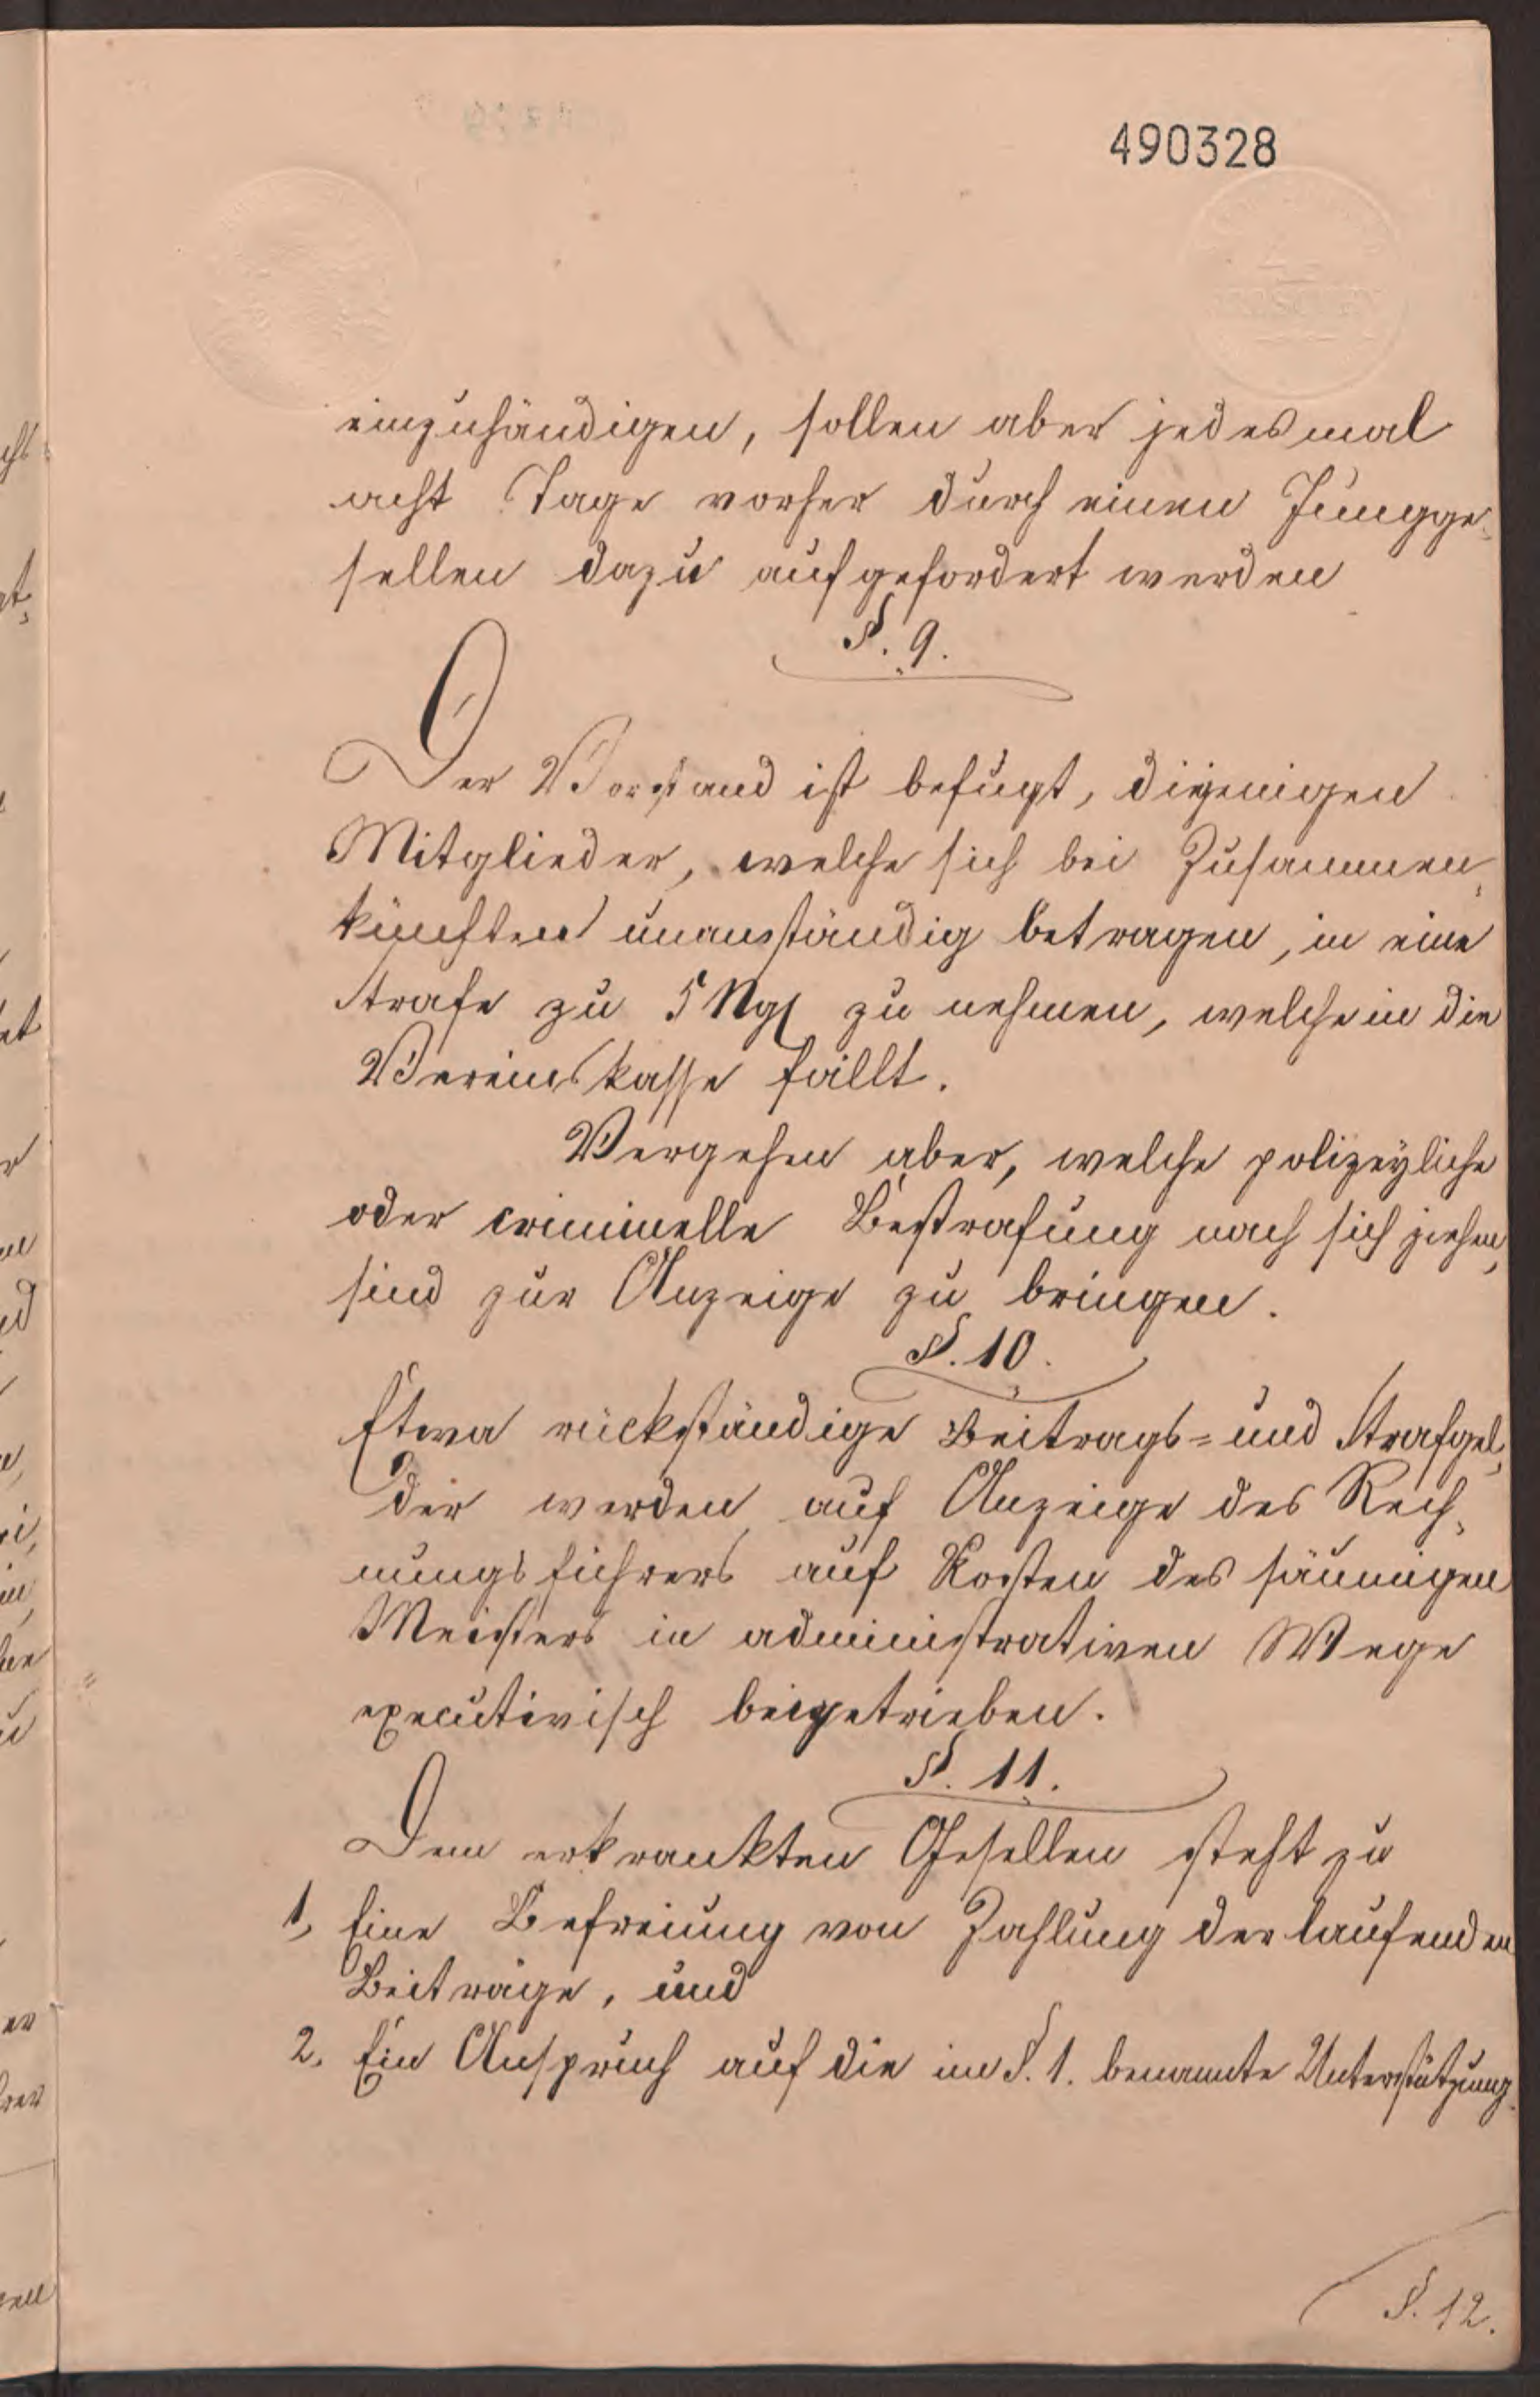 490328
einzuhändigen, sollen aber jedesmal
acht Tage vorher durch einen Jungge-
sellen dazu aufgefordert werden
§. 9.
Der Vorstand ist befugt, diejenigen
Mitglieder, welche sich bei Zusammen-
künften unanständig betragen, in eine
Strafe zu 5 Ngl zu nehmen, welche in die
Vereinskasse fällt.
Vergehen aber, welche polizeyliche
oder criminelle Bestrafung nach sich ziehen,
sind zur Anzeige zu bringen.
§. 10.
Etwa rückständige Beitrags- und Strafgel-
der werden auf Anzeige des Rech-
nungsführers auf Kosten des säumigen
Meisters in administrativen Wege
executivisch beigetrieben.
§. 11.
Dem erkrankten Gesellen steht zu
1, Eine Befreiung von Zahlung der laufenden
Beiträge, und
2. Ein Anspruch auf die im §. 1. benannte Unterstützung.
§. 12.